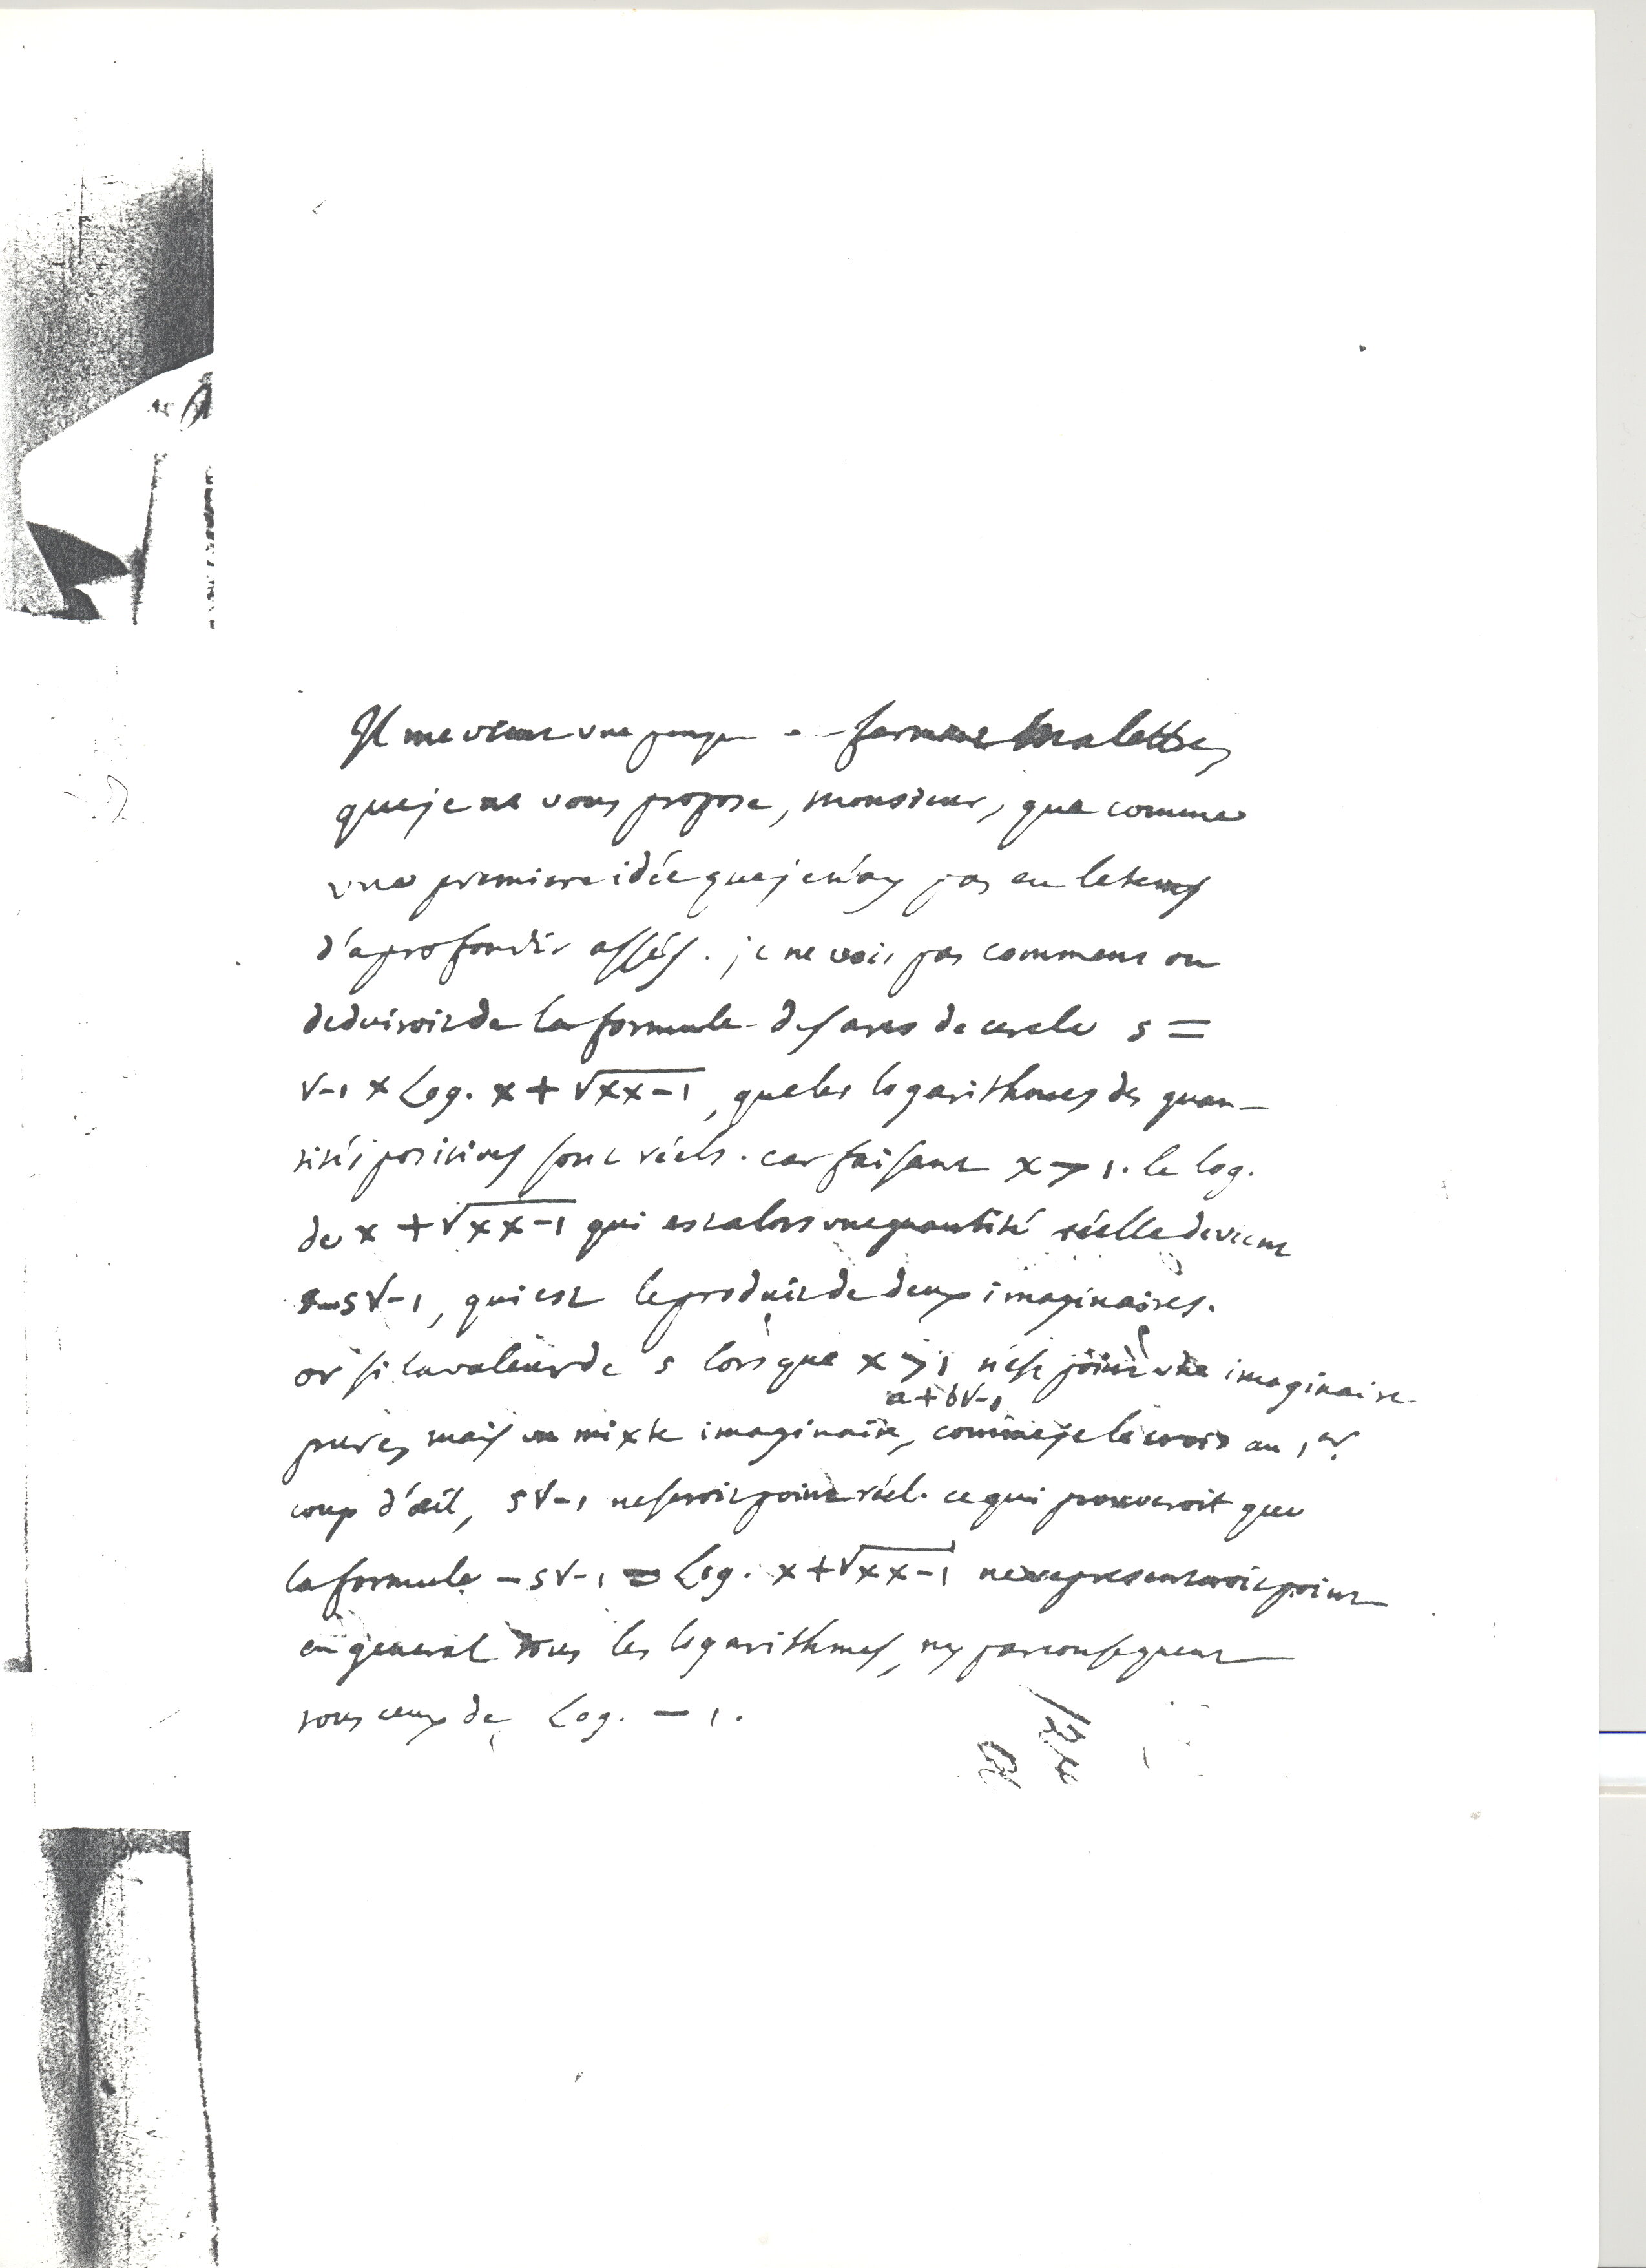 Il me vient une pensée - - fermant ma lettre,
que je ne vous propose, monsieur, que comme
une premiere idée que je n'ay pas eu le tems
d'aprofondir assés. je ne vois pas comment on
deduiroit de la formule des arcs de cercle s =
√-1 × Log. x + √xx-1, que les logarithmes des quan-
tités positives sont réels. car faisant x > 1. le log.
de x + √xx-1 qui est alors une quantité réelle devient
- s√-1, qui est le produit de deux imaginaires.
or si la valeur de s lorsque x > 1 n'est point une imaginaire
a+b√-1
pure, mais un mixte imaginaire, comme je le crois au 1er.
coup d'œil, s√-1 ne seroit point réel. ce qui prouveroit que
la formule - s√-1 = Log. x + √xx-1 ne representeroit point
en general tous les logarithmes, ny par consequent
tous ceux de Log. - 1.